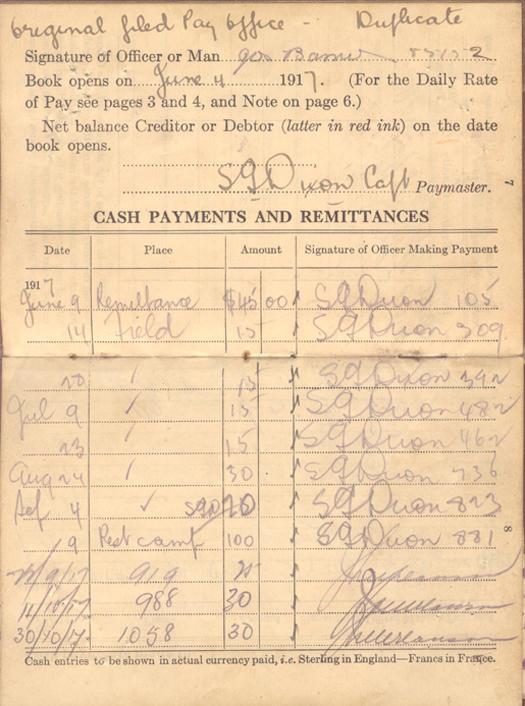 Original filed Pay Office - Duplicate
Signature of Officer or Man
Book opens on June 4 1917. (For the Daily Rate
of Pay see pages 3 and 4, and Note on page 6.)
Net balance Creditor or Debtor (latter in red ink) on the date
book opens.
S G Dixon Capt Paymaster.
7
CASH PAYMENTS AND REMITTANCES
Date Place Amount Signature of Officer Making Payment
1917
June 9 Remittance $45 00 S G Dixon 105
14 Field 15 S G Dixon 309
20 / 15 S G Dixon 392
Jul 9 / 15 S G Dixon 482
23 / 15 S G Dixon 462
Aug 24 / 30 S G Dixon 736
Sep 4 S G Dixon 823
19 Rest camp 100 S G Dixon 881
8
/9/17 919
11/10/17 988 30
30/10/17 1058 30
Cash entries to be shown in actual currency paid, i.e. Sterling in England—Francs in France.